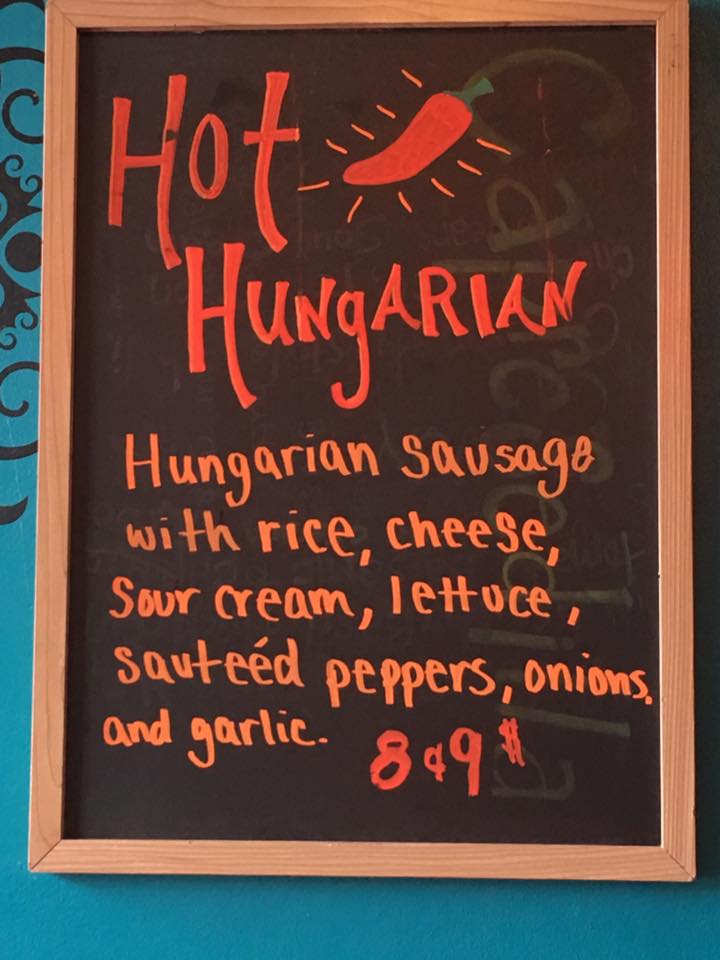 Hot
HUNgARIAN
Hungarian sausage
with rice, cheese,
sour cream, lettuce,
sauteéd peppers, onions,
and garlic. 8 & 9 $
Capreedilla